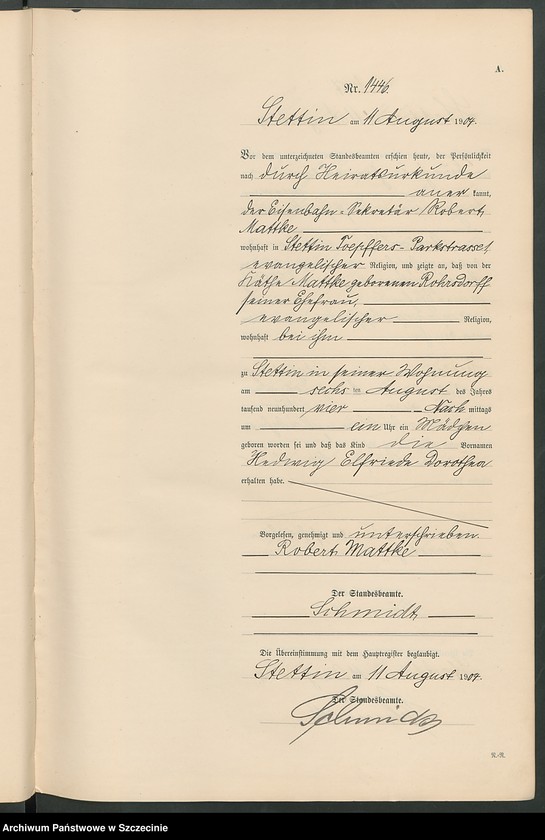 A.
Nr. 1446.
Stettin am 11 August 1904.
Vor dem unterzeichneten Standesbeamten erschien heute, der Persönlichkeit
nach durch Heiratsurkunde
aner kannt,
der Eisenbahn-Sekretär Robert
Mattke
wohnhaft in Stettin Toepffers-Parkstrasse 1
evangelischer Religion, und zeigte an, daß von der
Käthe Mattke geborenen Rohrsdorff
seiner Ehefrau,
evangelischer Religion,
wohnhaft bei ihm
zu Stettin in seiner Wohnung
am sechs ten August des Jahres
tausend neunhundert vier Nach mittags
um ein Uhr ein Mädchen
geboren worden sei und daß das Kind die Vornamen
Hedwig Elfriede Dorothea
erhalten habe.
Vorgelesen, genehmigt und unterschrieben.
Robert Mattke
Der Standesbeamte.
Schmidt
Die Übereinstimmung mit dem Hauptregister beglaubigt.
Stettin am 11 August 1904.
Der Standesbeamte.
Schmidt
R.-R.
Archiwum Państwowe w Szczecinie